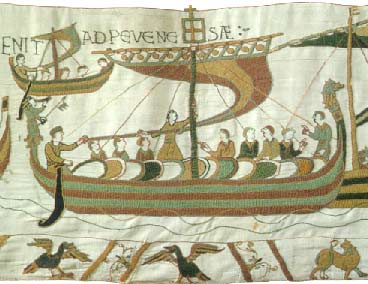 ENIT AD PEVENE SÆ:-